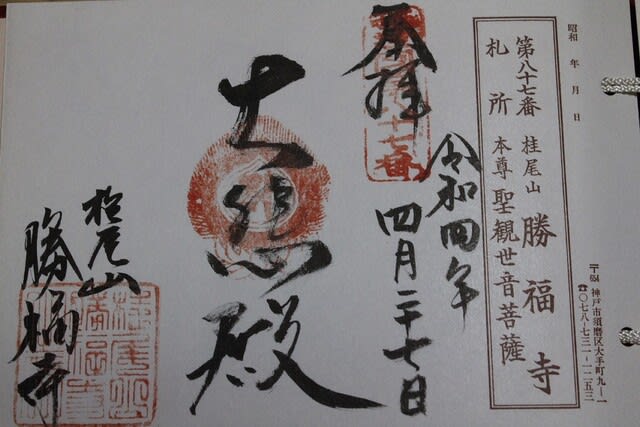 昭和 年 月 日
第八十七番 桂尾山 勝福寺
札所 本尊 聖観世音菩薩
〒654 神戸市須磨区大手町九-一
☎〇七八-七三一-一二五三
奉拝
令和四年
四月二十七日
大悲殿
桂尾山
勝福寺